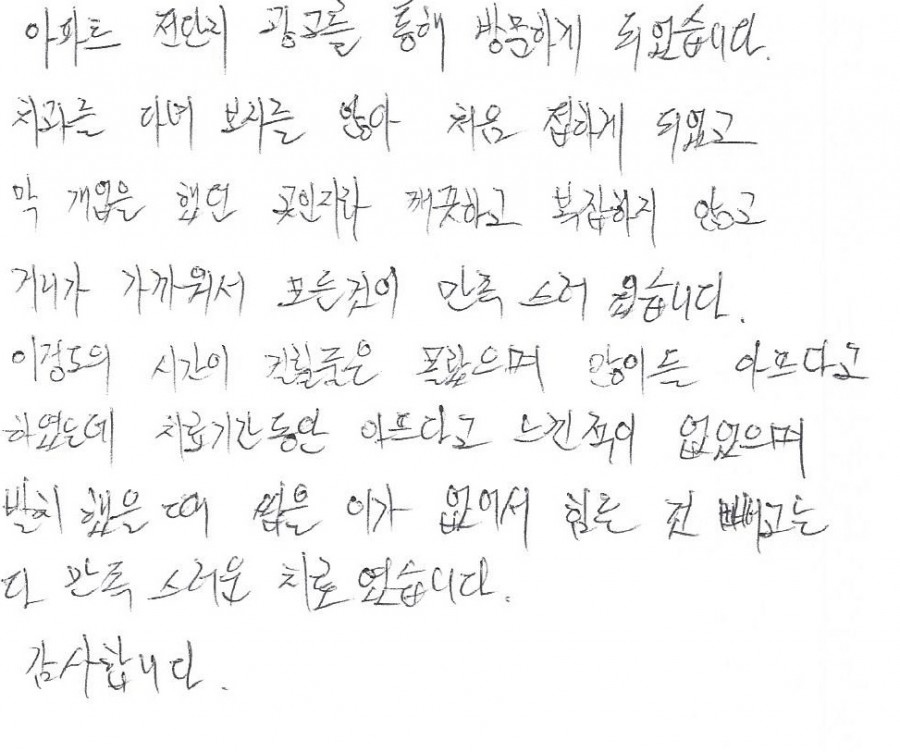 아파트 전단지 광고를 통해 방문하게 되었습니다.
치과를 다녀 보지를 않아 처음 접하게 되었고
막 개업을 했던 곳인지라 깨끗하고 복잡하지 않고
거리가 가까워서 모든것이 만족 스러 웠습니다.
이정도의 시간이 걸릴줄은 몰랐으며 많이들 아프다고
하였는데 치료기간동안 아프다고 느낀적이 없었으며
발치 했을 때 씹을 이가 없어서 힘든 것 빼고는
다 만족 스러운 치료 였습니다.
감사합니다.